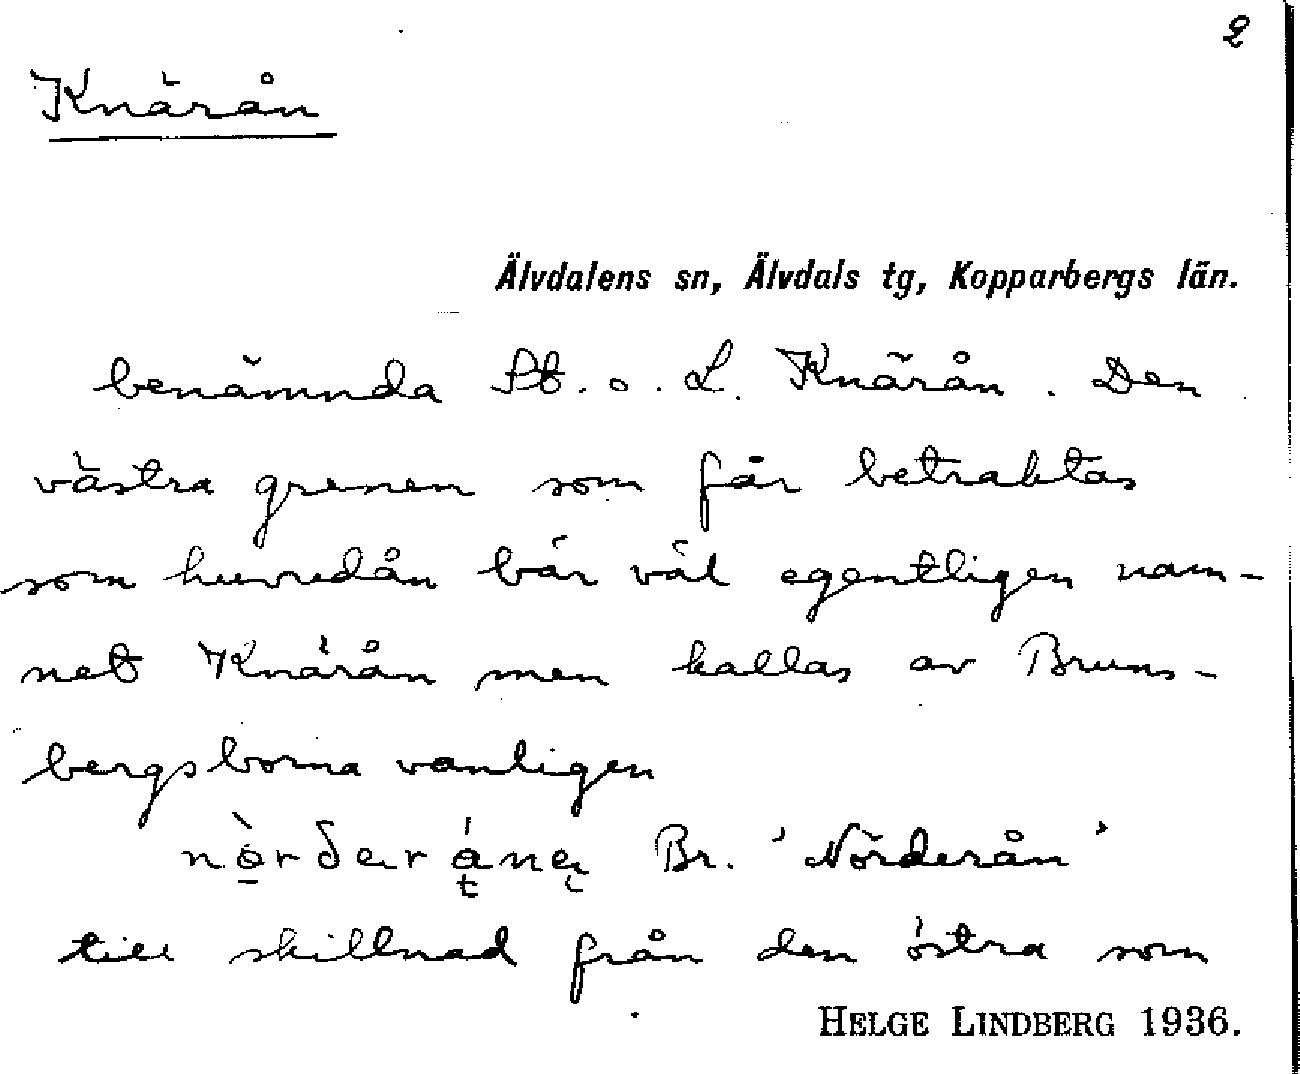 2
Knärån
Älvdalens sn, Älvdals tg, Kopparbergs län.
benämnda St. o. L. Knärån. Den
västra grenen som får betraktas
som huvudån bär väl egentligen nam-
net Knärån men kallas av Bruns-
bergsborna vanligen
Br. 'Nörderån'
till skillnad från den östra som
HELGE LINDBERG 1936.